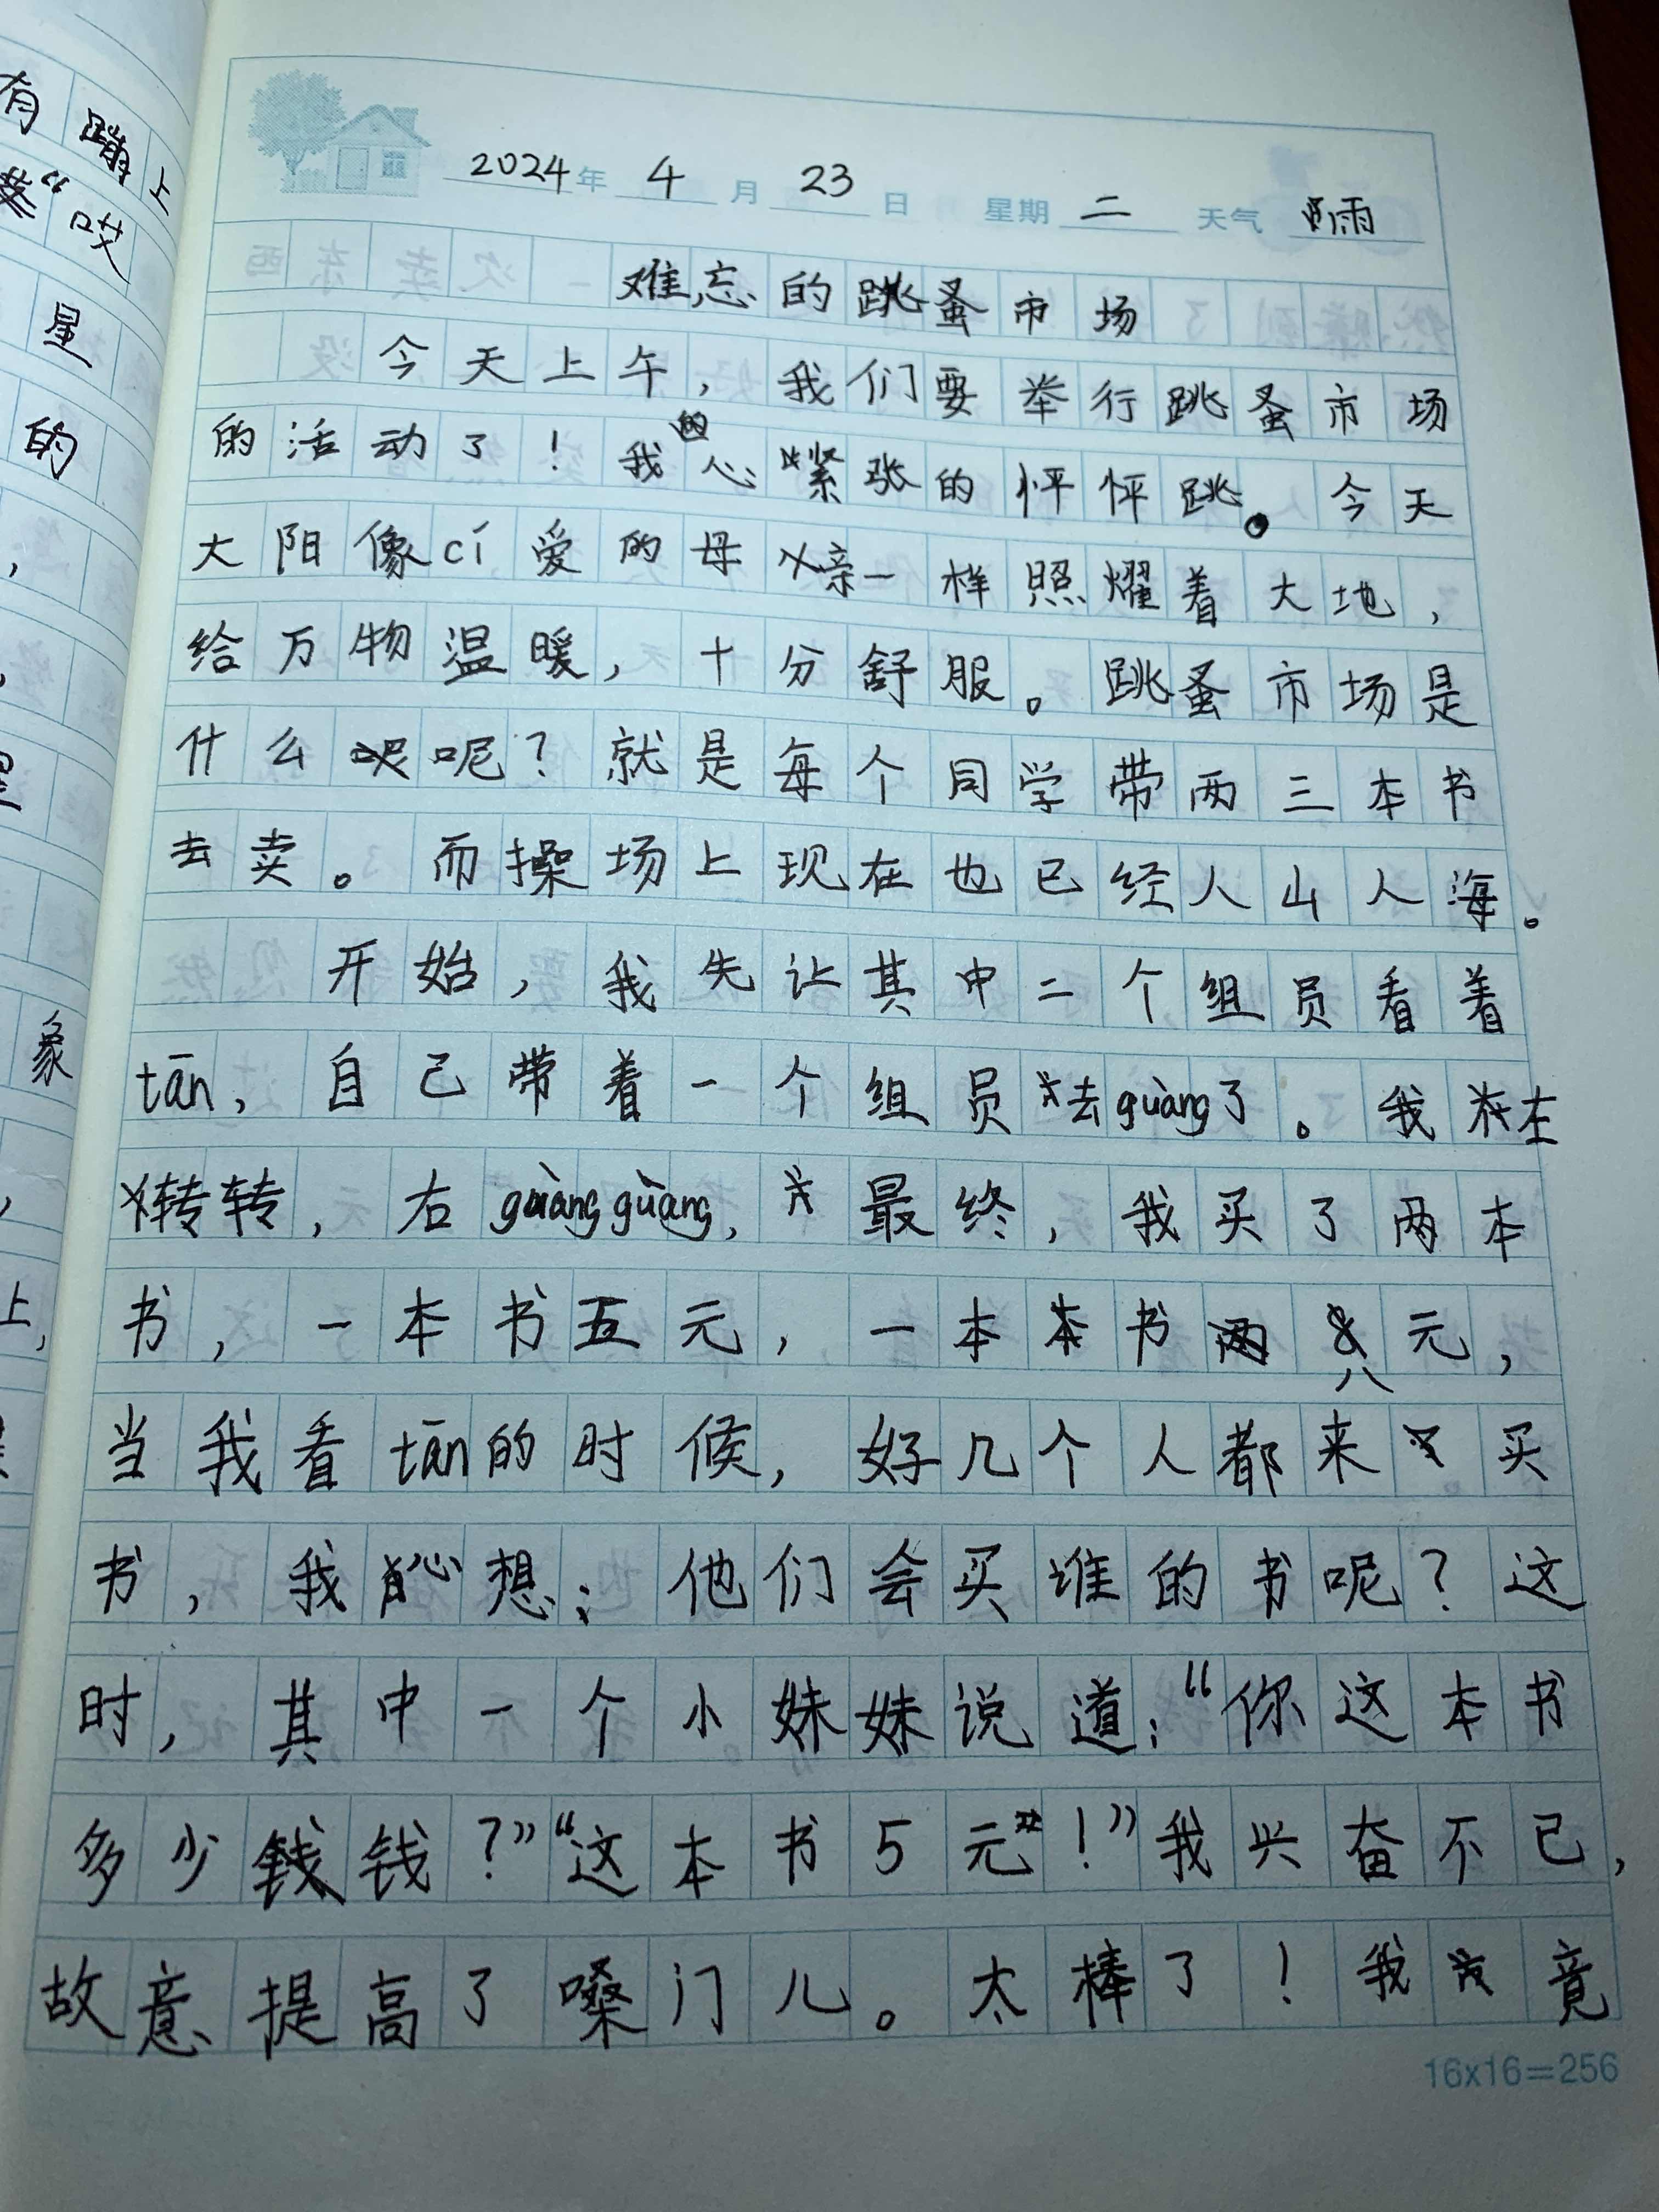 2024年 4 月 23 日 星期 二 天气 雨
难忘的跳蚤市场
今天上午，我们要举行跳蚤市场
的活动了！我的心紧张的怦怦跳。今天
大阳像cí爱的母亲一样照耀着大地，
给万物温暖，十分舒服。跳蚤市场是
什么呢？就是每个同学带两三本书
去卖。而操场上现在也已经人山人海。
开始，我先让其中二个组员看着
tān，自己带着一个组员去guàng了。我左
转转，右guàngguàng，最终，我买了两本
书，一本书五元，一本书八元，
当我看tān的时候，好几个人都来买
书，我心想：他们会买谁的书呢？这
时，其中一个小妹妹说道：“你这本书
多少钱？”“这本书5元！”我兴奋不已，
故意提高了嗓门儿。太棒了！我竟
16x16=256
有蹦上
”哎
星
的
象
上，